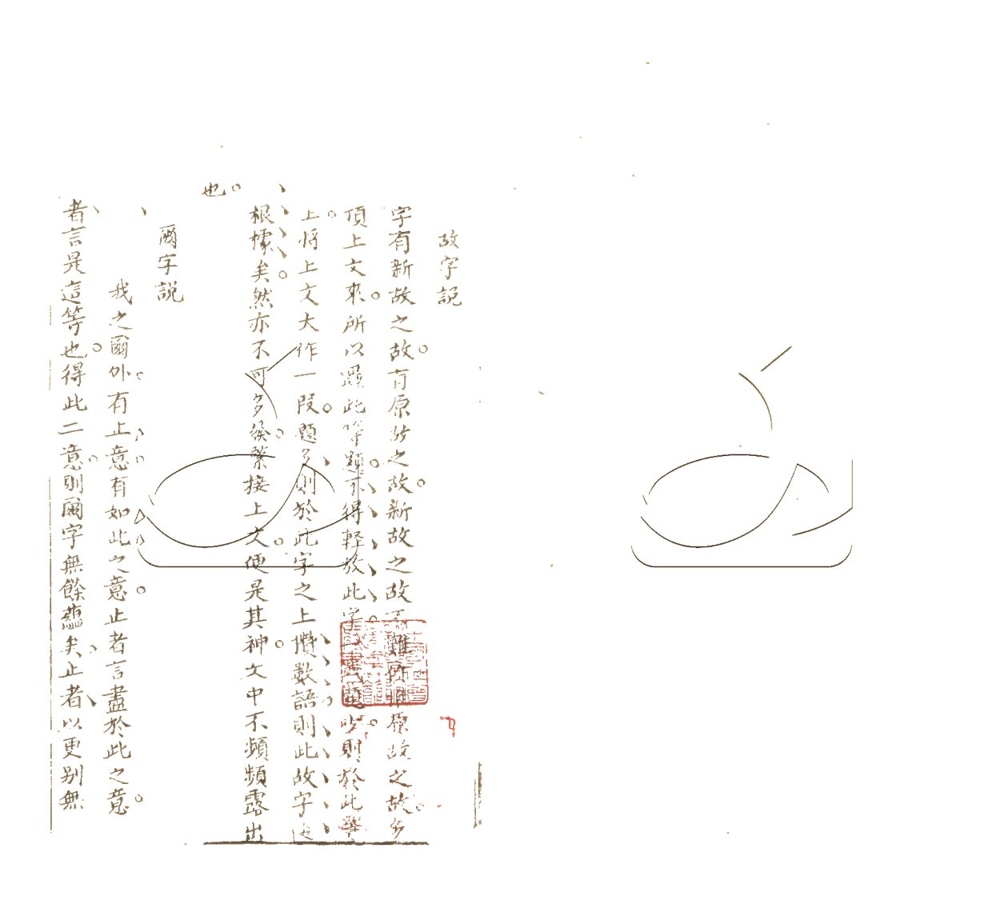 故字説
字有新故之故有原故之故新故之故難原故之故多
頂上文來所以遇此等題不得輕放此字題少則於此舉
上將上文大作一段題多則於此字之上攢數語則此故字
根據矣然亦不可多緊接上文便是其神文中不頻頻露出
也
爾字説
我之爾外有止意有如此之意止者言盡於此之意
者言是這等也得此二意則爾字無餘蘊矣止者以更别無